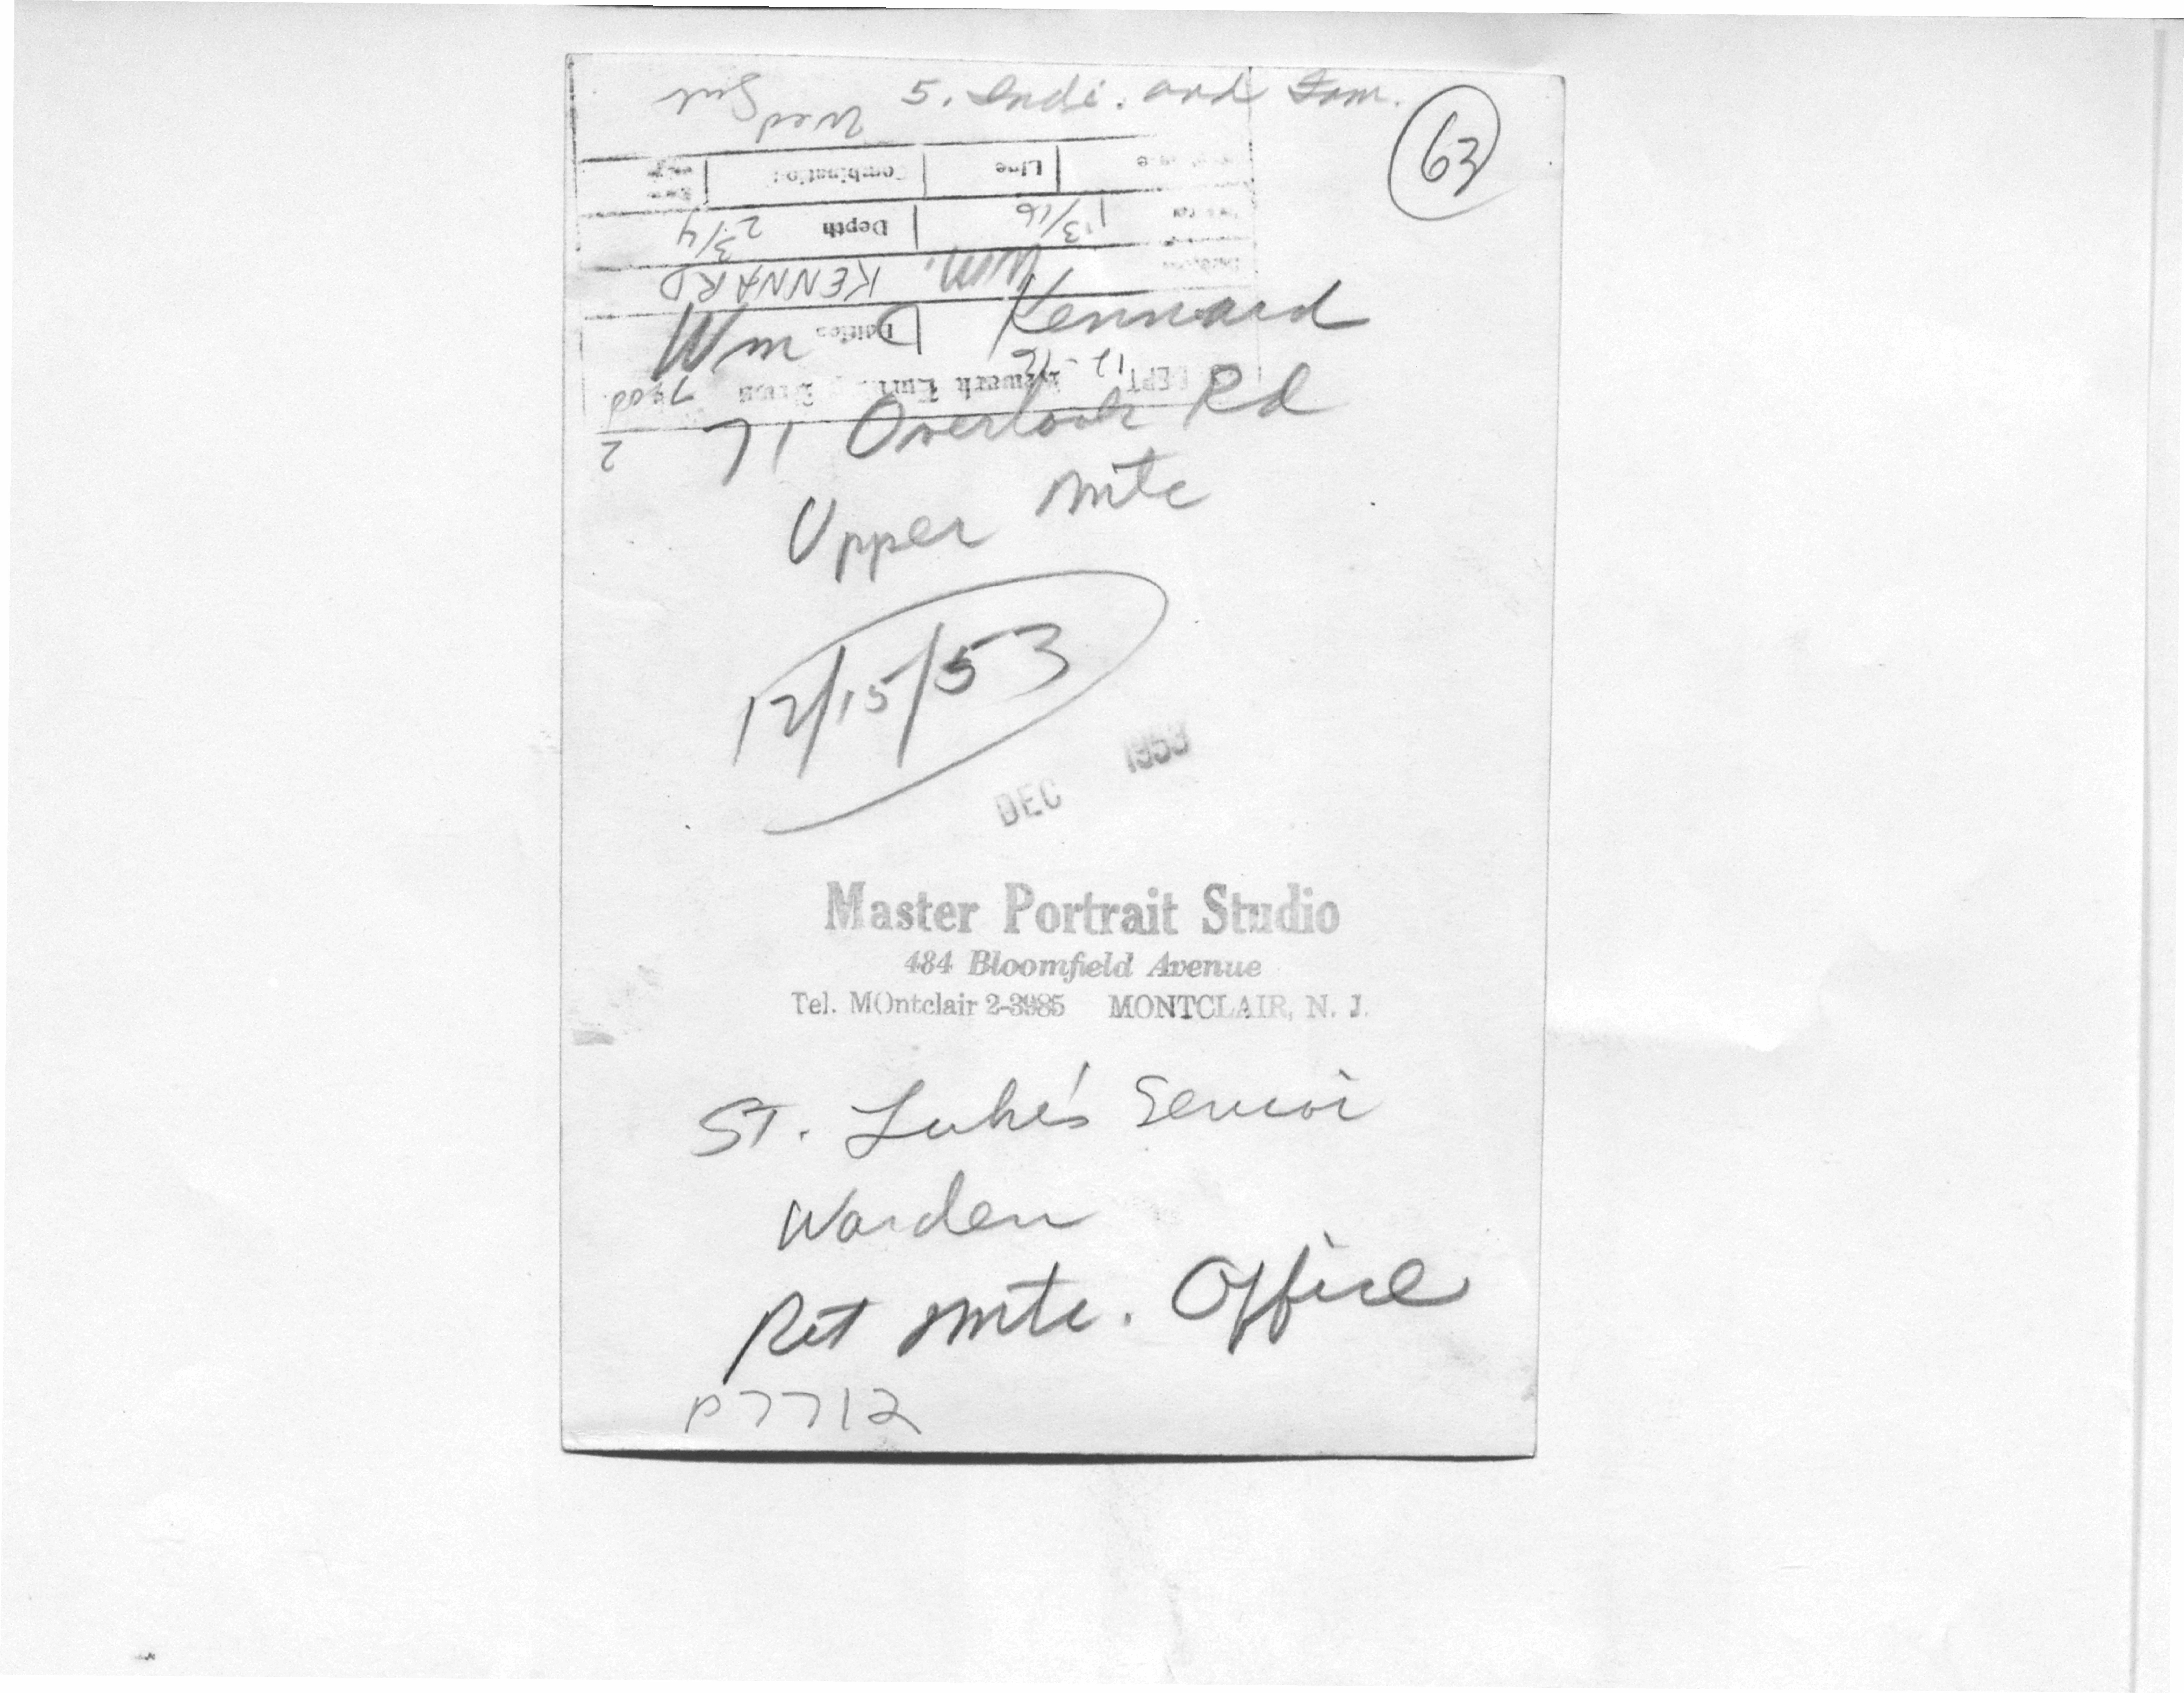 5. Indi. and Fam.
63
Wed
Line
Combination
13/16
Depth 2 3/4
Wm. KENNARD
Wm D Kennard
Edition
DEPT
71 Overlook Rd
2
Upper Mtc
12/15/53
DEC 1953
Master Portrait Studio
484 Bloomfield Avenue
Tel. MOntclair 2-3985 MONTCLAIR, N. J.
St. Luke's Senior
Warden
Ret Mtc. Office
P7712